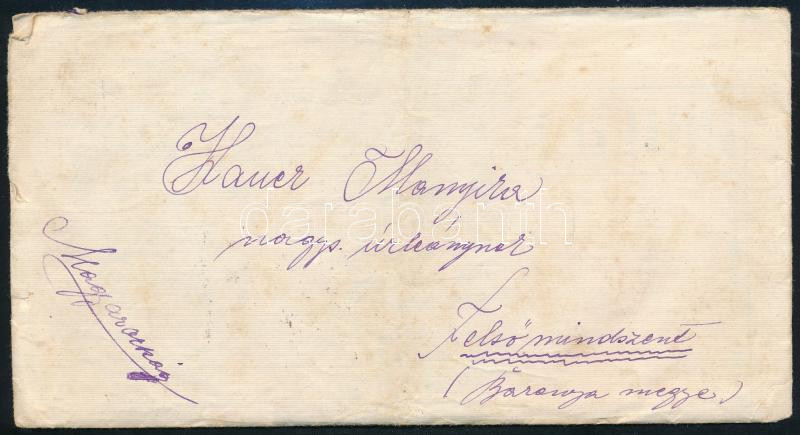 Hauer Manyira
nagys. úrleánynak
Felsőmindszent
(Baranya megye)
Magyarország
darabanth